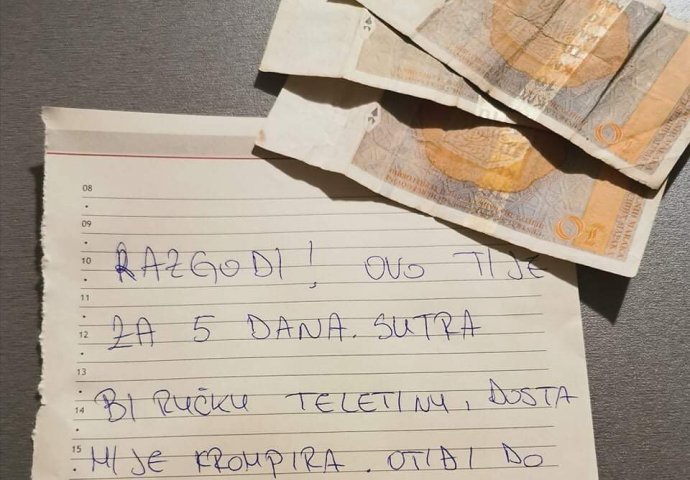 08
09
10 RAZGODI! OVO TI JE
11
12 ZA 5 DANA. SUTRA
13
14 BI RUČKU TELETINU, DOSTA
15 MI JE KROMPIRA. OTIĐI DO